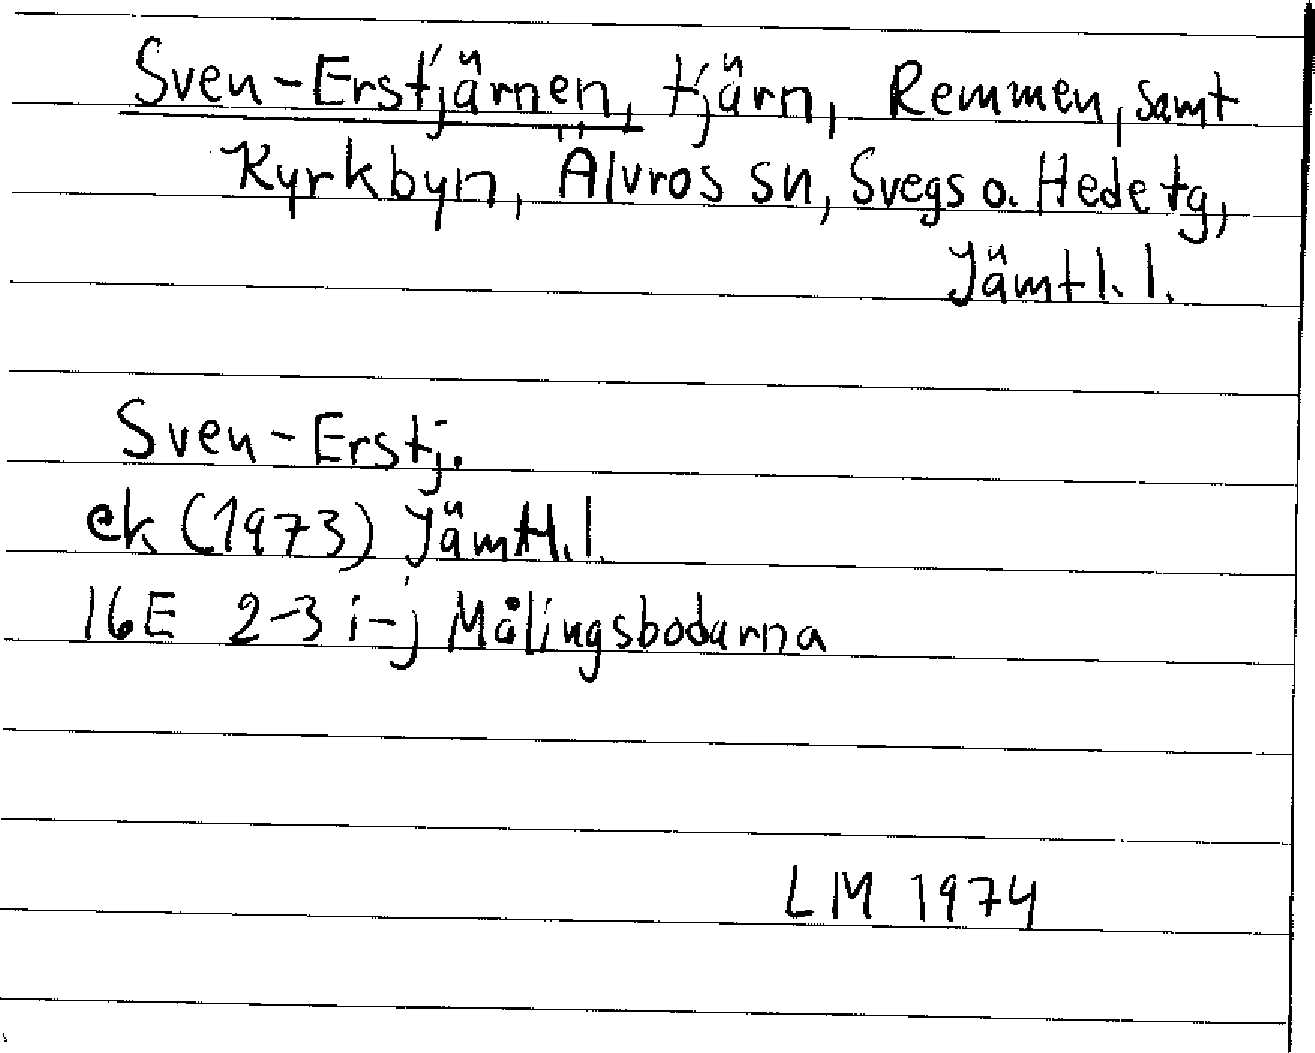 Sven-Erstjärnen, tjärn, Remmen, samt
Kyrkbyn, Älvros sn, Svegs o. Hede tg,
Jämtl. l.
Sven-Erstj.
ek (1973) Jämtl. l.
16E 2-3 i-j Målingsbodarna
LM 1974